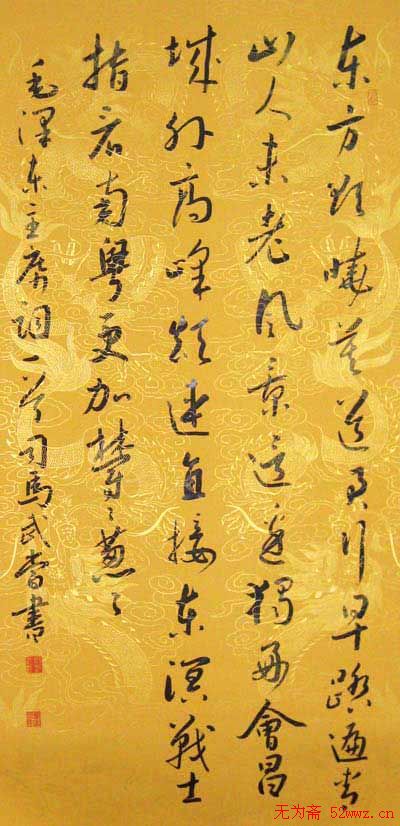 东方欲晓莫道君行早踏遍青
山人未老风景这边独好會昌
城外高峰颠连直接东溟戰士
指看南粤更加鬱々葱々
毛泽东主席词一首司馬武書
无为斋 52wwz.cn